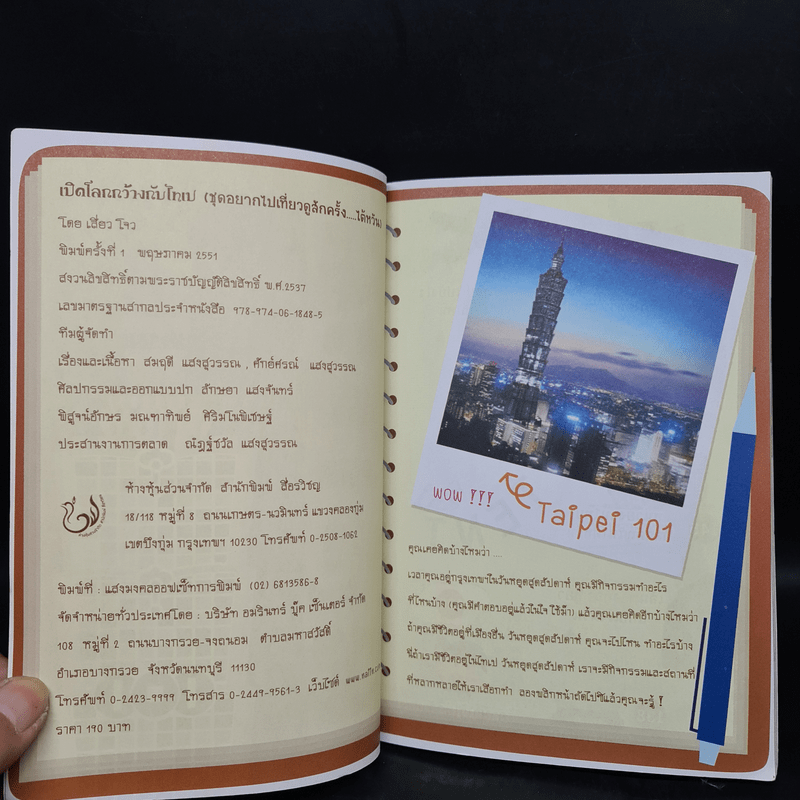 เปิดโลกกว้างกับไทเป (ชุดอยากไปเที่ยวดูสักครั้ง.....ไต้หวัน)
โดย เสี่ยว โจว
พิมพ์ครั้งที่ 1 พฤษภาคม 2551
สงวนลิขสิทธิ์ตามพระราชบัญญัติลิขสิทธิ์ พ.ศ.2537
เลขมาตรฐานสากลประจำหนังสือ 978-974-06-1848-5
ทีมผู้จัดทำ
เรื่องและเนื้อหา สมฤดี แสงสุวรรณ , ศักย์ศรณ์ แสงสุวรรณ
ศิลปกรรมและออกแบบปก ลักษอา แสงจันทร์
พิสูจน์อักษร มณฑาทิพย์ ศิริมโนพิเชษฐ์
ประสานงานการตลาด ณัฎฐ์ชวัล แสงสุวรรณ
ห้างหุ้นส่วนจำกัด สำนักพิมพ์ สื่อรวิชญ
18/118 หมู่ที่ 8 ถนนเกษตร-นวมินทร์ แขวงคลองกุ่ม
เขตบึงกุ่ม กรุงเทพฯ 10230 โทรศัพท์ 0-2508-1062
พิมพ์ที่ : แสงมงคลออฟเซ็ทการพิมพ์ (02) 6813586-8
จัดจำหน่ายทั่วประเทศโดย : บริษัท อมรินทร์ บุ๊ค เซ็นเตอร์ จำกัด
108 หมู่ที่ 2 ถนนบางกรวย-จงถนอม ตำบลมหาสวัสดิ์
อำเภอบางกรวย จังหวัดนนทบุรี 11130
โทรศัพท์ 0-2423-9999 โทรสาร 0-2449-9561-3 เว็บไซต์
ราคา 190 บาท
WOW !!!
Taipei 101
คุณเคยคิดบ้างไหมว่า ....
เวลาคุณอยู่กรุงเทพฯในวันหยุดสุดสัปดาห์ คุณมีกิจกรรมทำอะไร
ที่ไหนบ้าง (คุณมีคำตอบอยู่แล้วในใจ ใช่มั้า) แล้วคุณเคยคิดอีกบ้างไหมว่า
ถ้าคุณมีชีวิตอยู่ที่เมืองอื่น วันหยุดสุดสัปดาห์ คุณจะไปไหน ทำอะไรบ้าง
นี่ถ้าเรามีชีวิตอยู่ในไทเป วันหยุดสุดสัปดาห์ เราจะมีกิจกรรมและสถานที่
ที่หลากหลายให้เราเลือกทำ ลองพลิกหน้าถัดไปซิแล้วคุณจะรู้ !